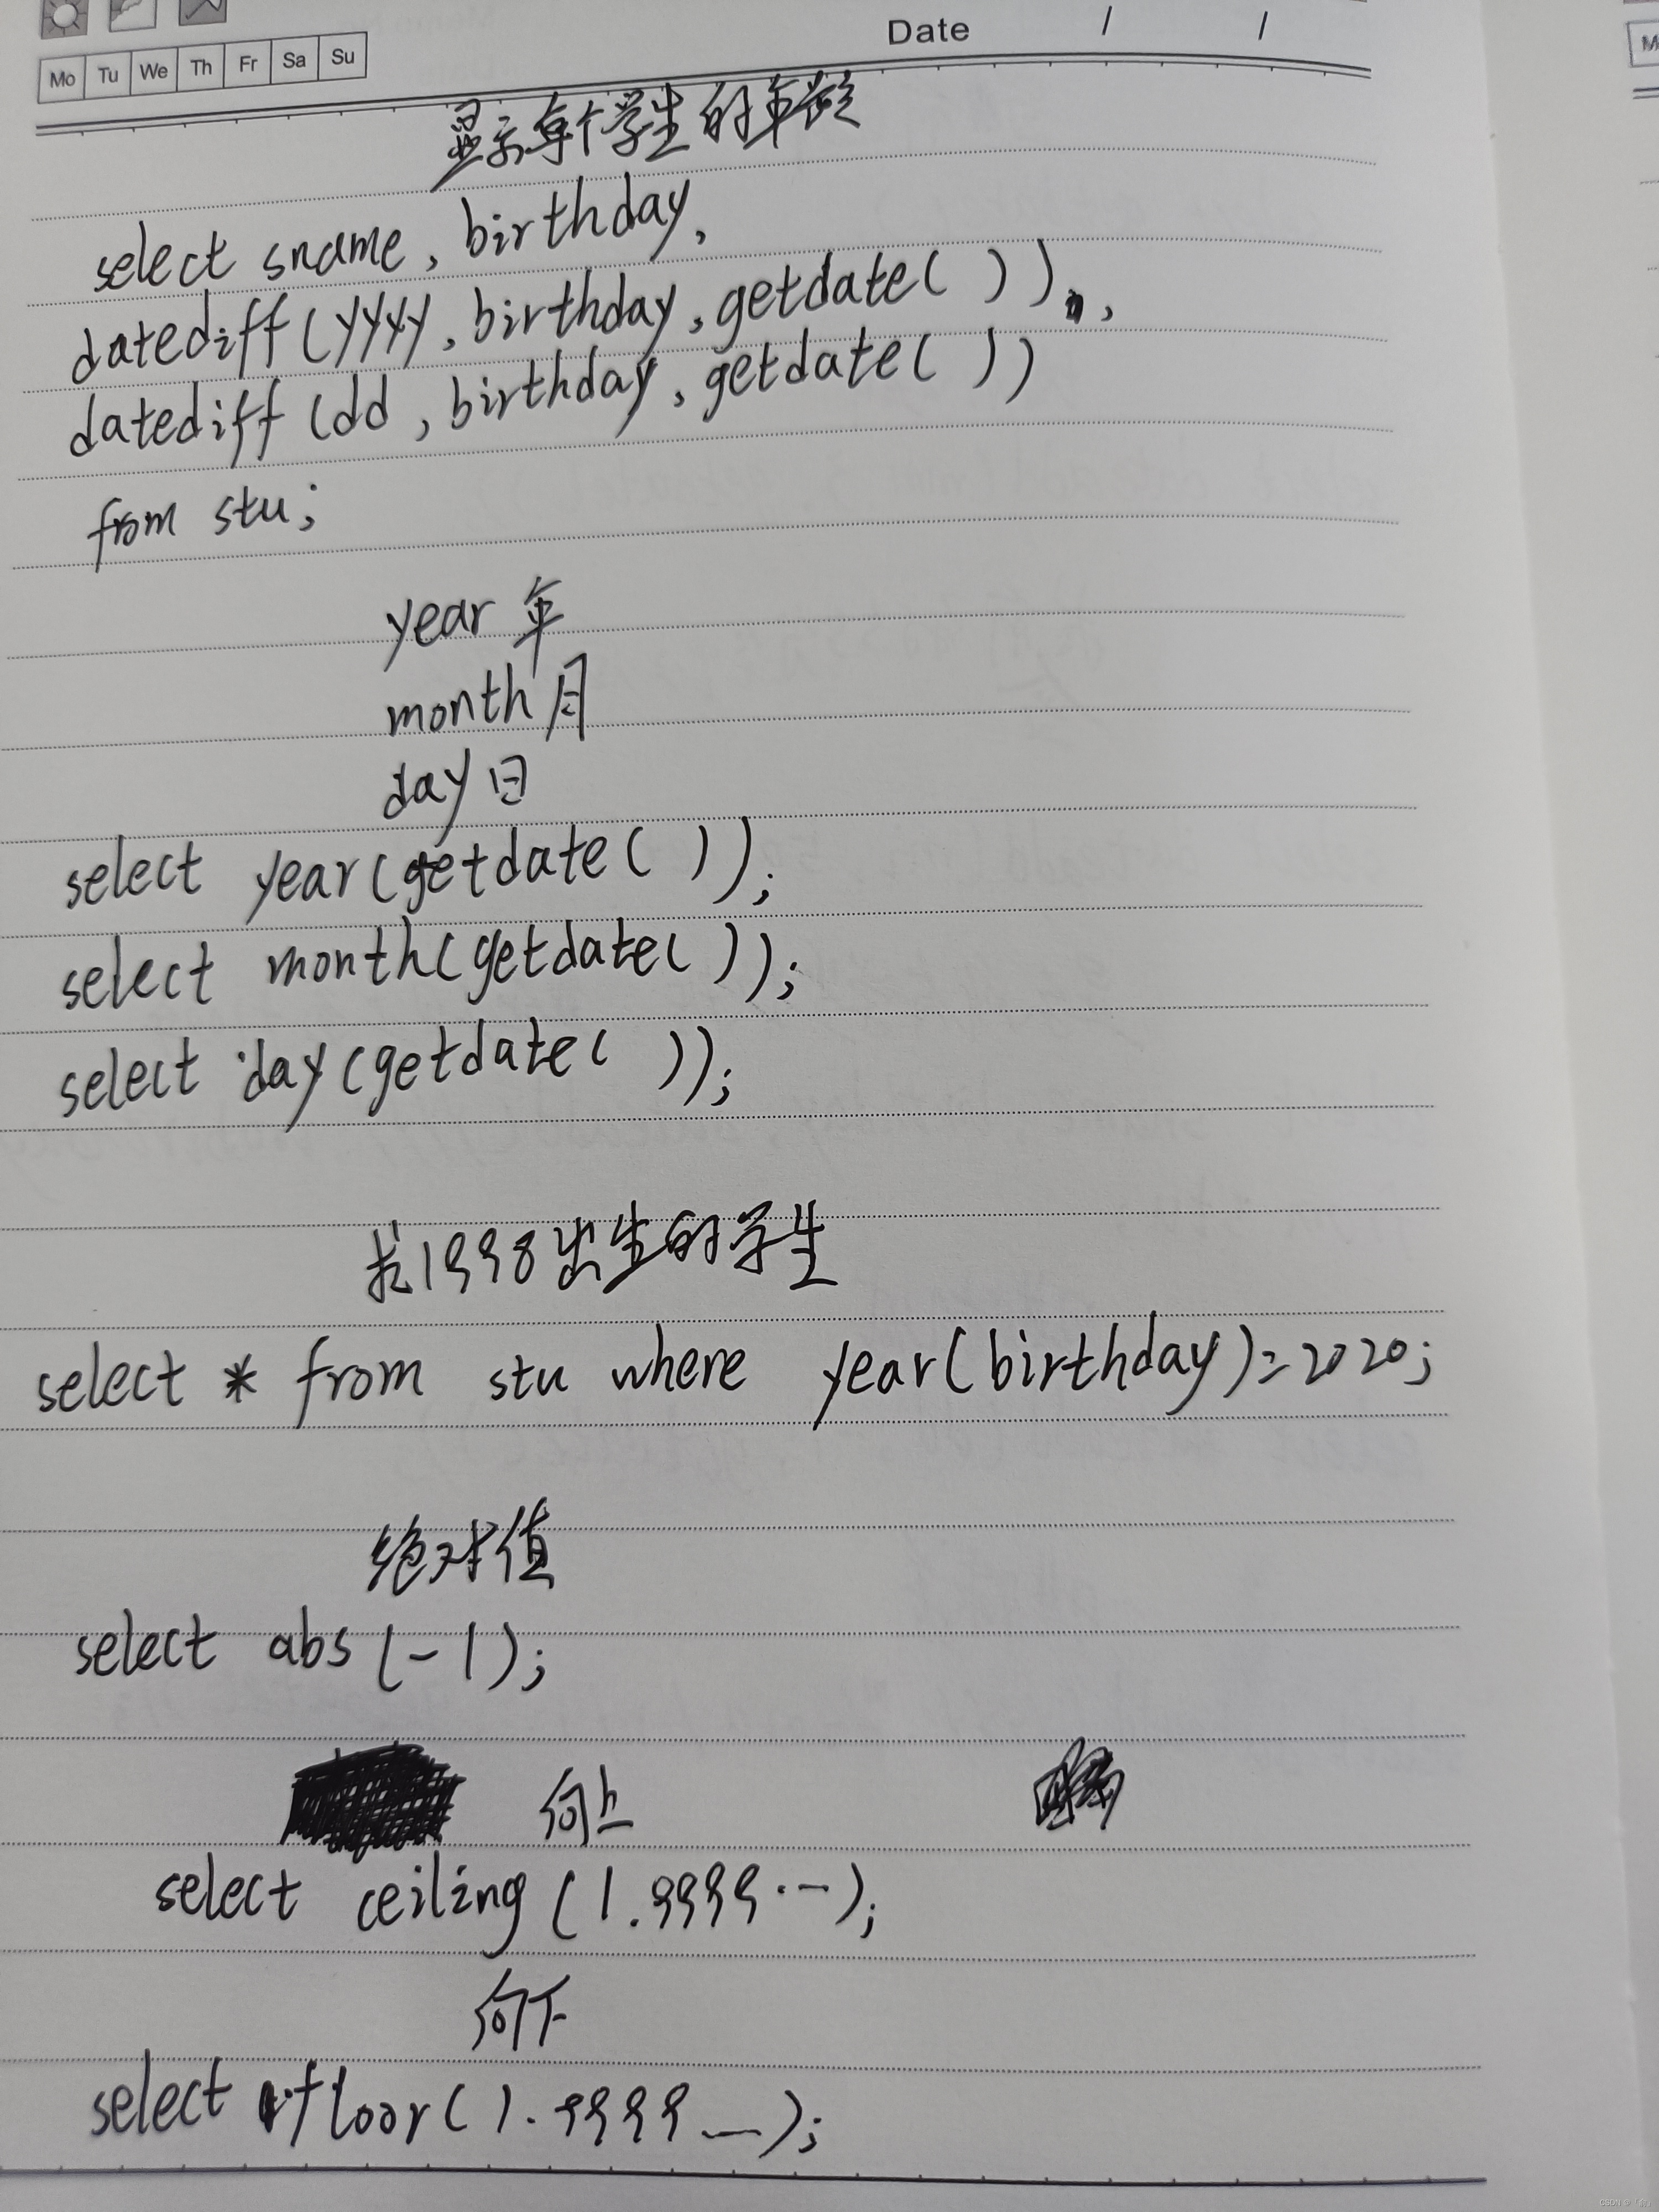 Date / /
Mo Tu We Th Fr Sa Su
显示每个学生的年龄
select sname, birthday,
datediff(yyyy, birthday, getdate( )),
datediff(dd, birthday, getdate( ))
from stu;
year 年
month 月
day 日
select year(getdate( ));
select month(getdate( ));
select day(getdate( ));
求1998出生的学生
select * from stu where year(birthday)=2020;
绝对值
select abs(-1);
向上
select ceiling(1.9999...);
向下
select floor(1.9999...);